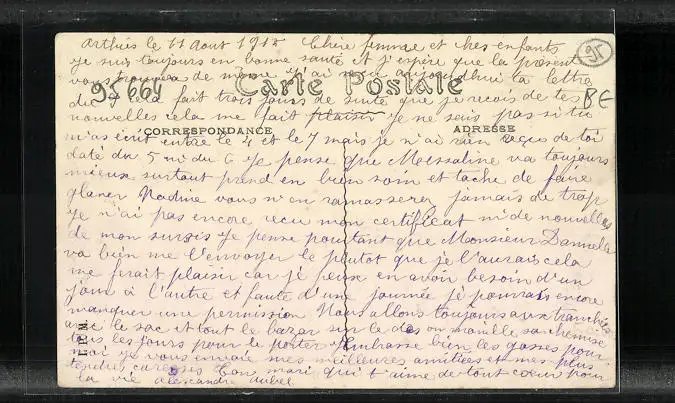 arthies le 11 aout 1915 Chère femme et ches enfants
je suis toujours en bonne santé et j'espère que la présent
vous trouvera de même j'ai reçu aujourdhui ta lettre
95664 Carte Postale 95
du 7 cela fait trois jours de suite que je reçois de tes BE
nouvelles cela me fait plaisir je ne sais pas si tu
CORRESPONDANCE ADRESSE
m'as écrit entre le 4 et le 7 mais je n'ai rien reçus de toi
daté du 5 ni du 6 je pense que Messaline va toujours
mieux surtout prend en bien soin et tache de faire
glaner Nadine vous n'en ramasserez jamais de trop
je n'ai pas encore reçu mon certificat ni de nouvelles
de mon sursis je pense pourtant que Monsieur
va bien me l'envoyer le plutot que je l'aurais cela
me ferait plaisir car je peux en avoir besoin d'un
jour à l'autre et faute d'une journée je pourrais encore
manquer une permission Nous allons toujours aux tranchées
avec le sac et tout le bazar sur le dos on mouille sa chemise
tous les jours pour le porter Embrasse bien les gosses pour
moi je vous envoie mes meilleures amitiées et mes plus
tendres caresses Ton mari qui t'aime de tout coeur pour
la vie alexandre aubel